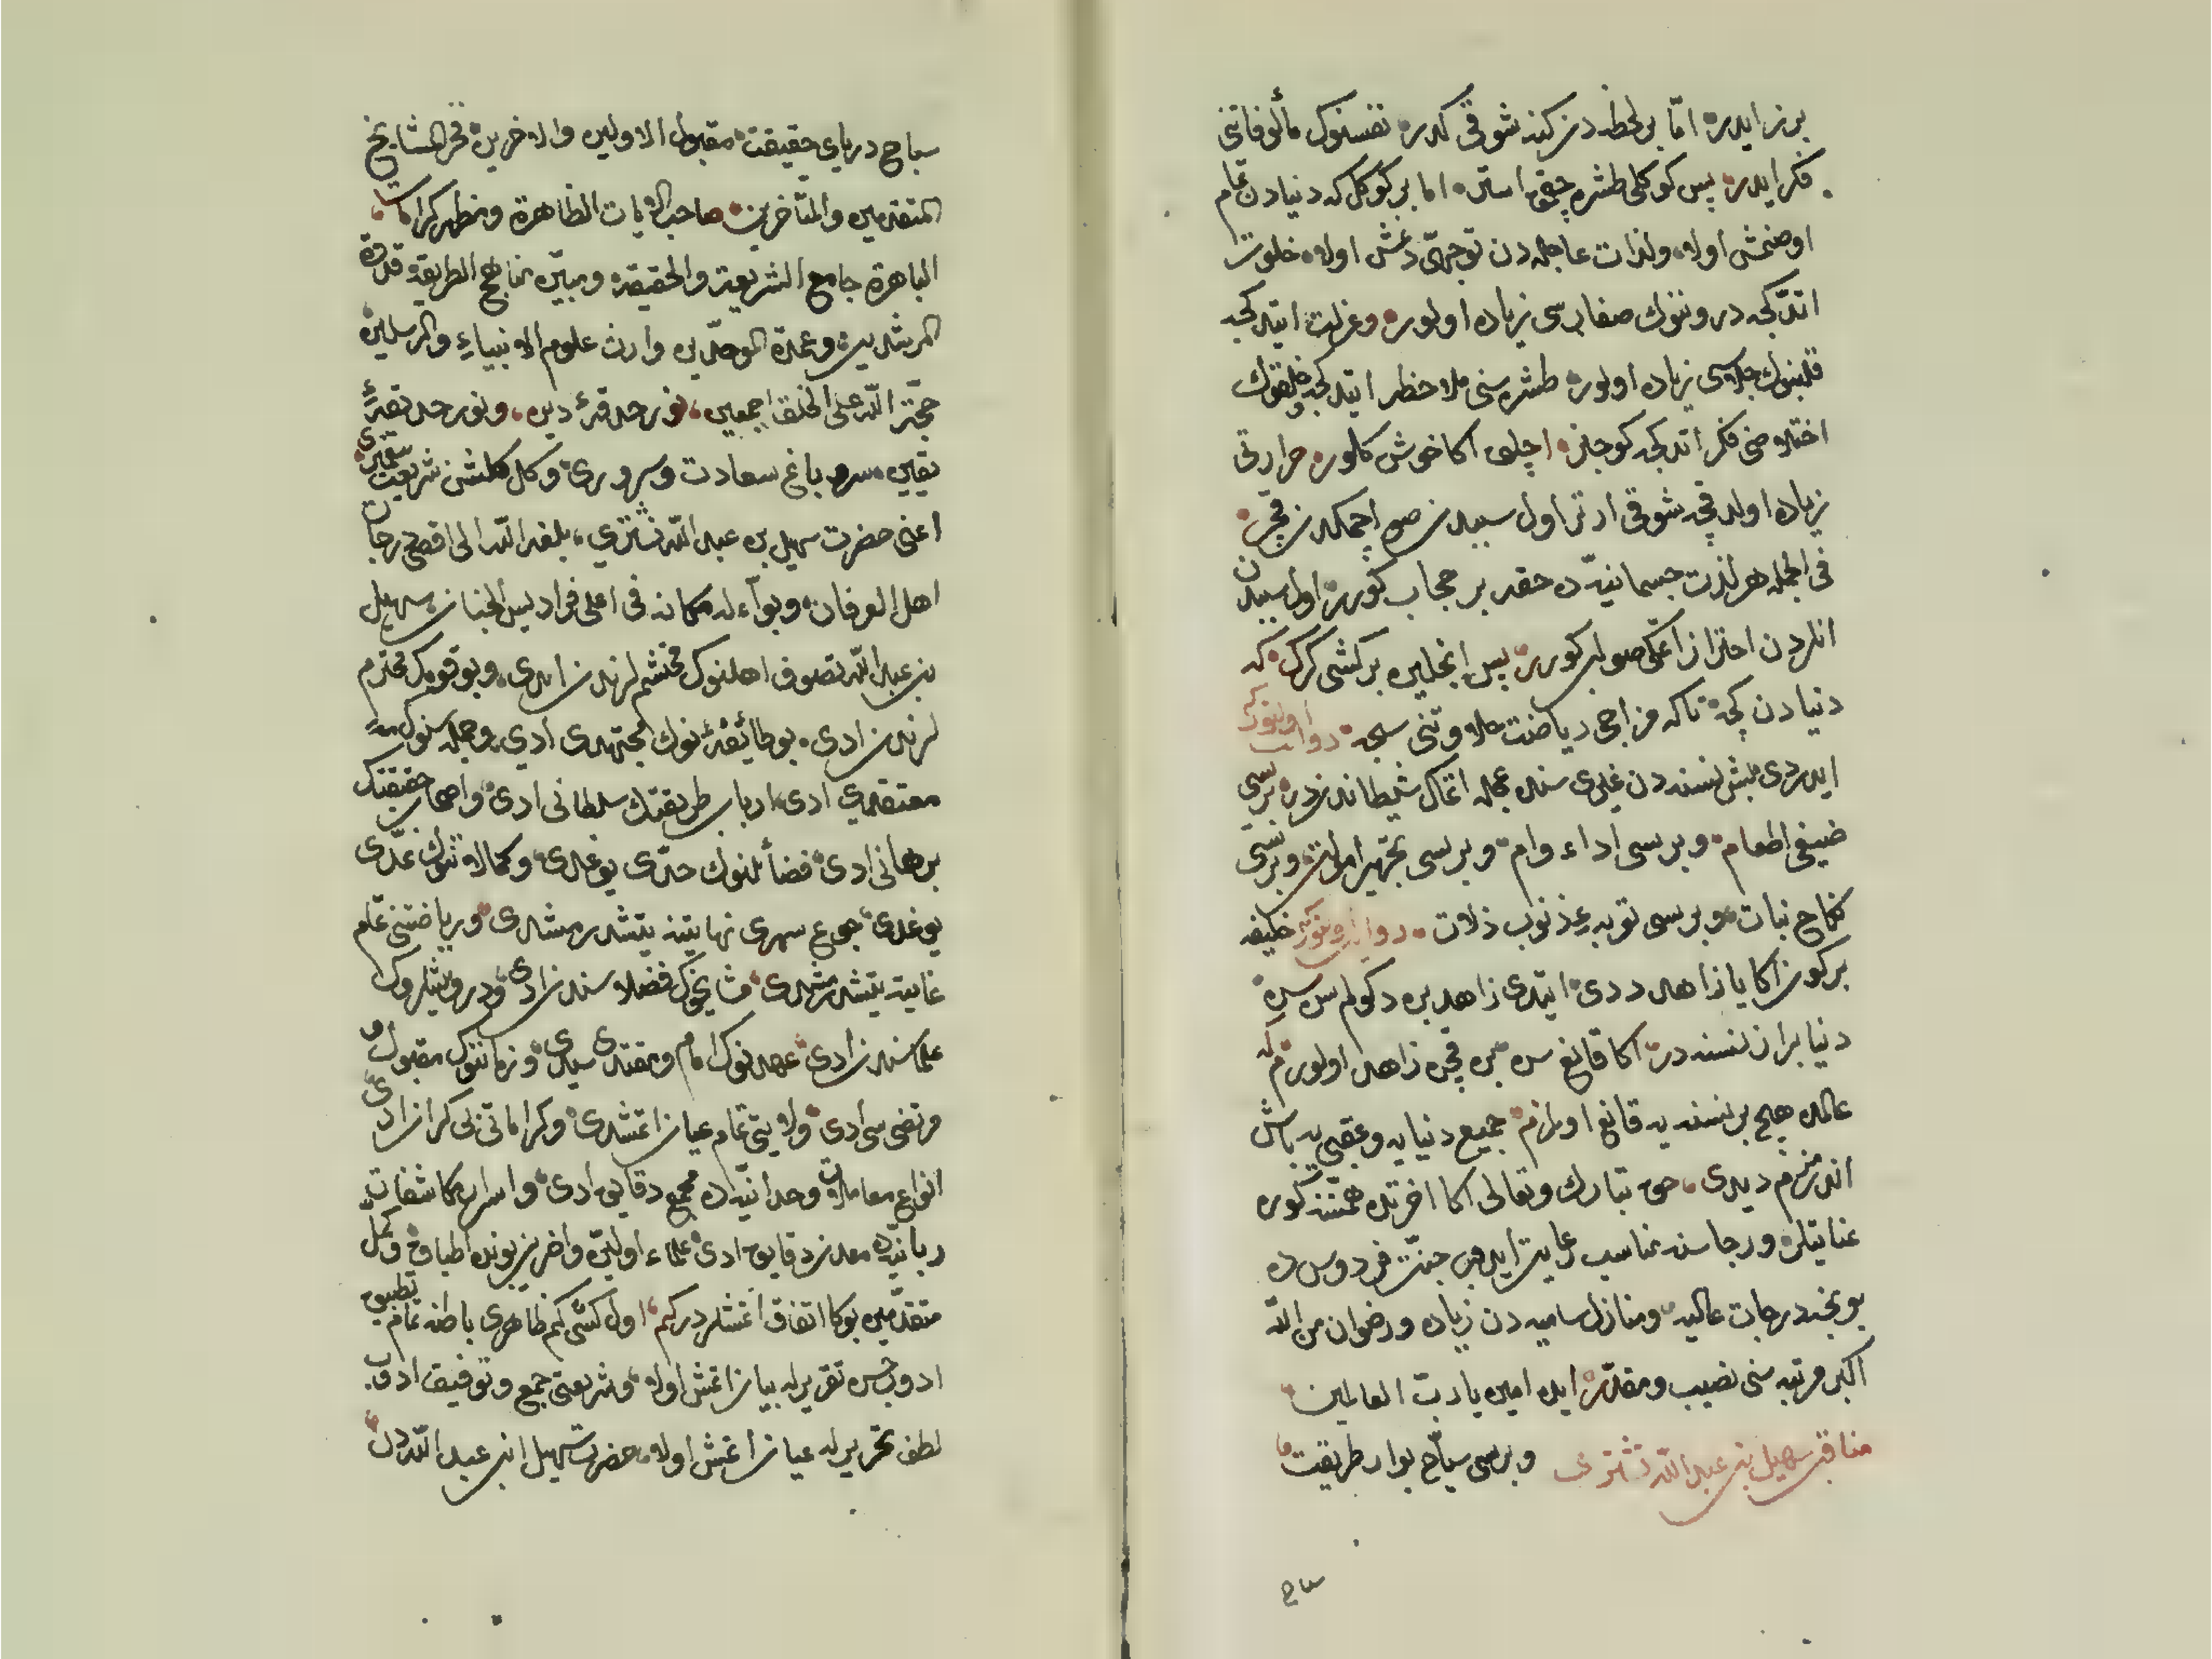 بر ز ایدر اما بر لحظه دن كنه شوقی كلدر نفسنوك مألوفاتنی
فكر ایدر پس كوكلی طشره چقمق استر اما بر كوكل كه دنیادن تمام
اوصنمش اولا ولذات عاجله دن توجهی دنمش اوله خلوت
اتدكجه درونوك صفاسی زیاده اولور وعزلت ایتدكجه
قلبنوك جلاسی زیاده اولور طشره سنی ملاحظه ایتدكجه وخلقوك
اختلاطنی فكر اتدكجه كوجنر اچلق اكا خوش كلور حرارتی
زیاده اولدقجه شوقی ارتر اول سببدن صو ایچمكدن قچر
فی الجمله هر لذت جسمانیه ده حقه بر حجاب كورر اول سببدن
انلردن احتراز اتمكی صواب كورر پس انجلین بر كشی كرك كه
دنیادن كچه تا كه مزاجی ریاضت حلاوتنی سچه روایت اولنور كه
ایدردی بش نسنه دن غیری سنده عجله اتمك شیطاندندر بریسی
ضیفی اطعام وبریسی اداء وام وبریسی تجهیز اموات وبریسی
نكاح بنات وبریسی توبه عن ذنوب زلات روایت اولنور كه خلیفه
بر كون اكا یا زاهد ددی ایتدی زاهد بن دكولم سن سن
دنیا بر از نسنه در اكا قانع سن بن قچن زاهد اولورم كه
عالمده هیچ بر نسنه یه قانع اولمزم جمیع دنیایه وعقبی یه باش
اندرمزم دیدی حق تبارك وتعالی اكا اخرتده همتنه كوره
عنایتلر ورجاسنه مناسب رعایت ایدوب جنت فردوس ده
بونجه درجات عالیه ومنازل سامیه دن زیاده ورضوان من الله
اكبر مرتبه سنی نصیب ومقدر ایده امین یا رب العالمین
مناقب سهیل بن عبد الله تشتری وبریسی سیاح بوادی طریقت
سباح
سباح دریای حقیقت مقبول الاولین والاخرین فخر المشایخ
المتقدمین والمتأخرین صاحب الایات الظاهرة ومظهر كرامات
الباهرة جامع الشریعة والحقیقة ومبین مناهج الطریقة قدوة
المرشدین وعمدة الموحدین وارث علوم الانبیاء والمرسلین
حجة الله علی الخلق اجمعین نور حدقۀ دین ونور حدیقۀ
یقین سرو باغ سعادت وسروری وكل كلشن شریعت
اعنی حضرت سهیل بن عبد الله تشتری بلغه الله الی اقصی درجات
اهل العرفان وبوآء له مكانه فی اعلی فرادیس الجنان سهیل
بن عبد الله تصوف اهلنوك محتشملرندن ایدی وبو قومك محترم
لرندن ادی بو طائفه نوك مجتهدی ادی وجمله سنوك
معتقدی ادی ارباب طریقتك سلطانی ادی واصحاب حقیقتك
برهانی ادی فضائلنوك حدی یوغدی وكمالاتنوك عدی
یوغدی جوع سهری نهایتنه یتشدرمشدی وریاضتنی تمام
غایته یتشدرمشدی مشایخك فضلاسندن ادی ودرویشلروك
علماسندن ادی عهدنوك امام ومقتدی سیدی وزماننوك مقبول و
مرتضی سی ادی ولایتی تمام عیان اتمشدی وكراماتی بی كران ادی
انواع معاملات وحدانیه ده مجمع دقایق ادی واسرار مكاشفات
ربانیه ده معدن دقایق ادی علماء اولین واخرین بونده اطباق وكمل
متقدمین بوكا اتفاق اتمشلردر كم اول كشی كم ظاهری باطنه تمام تطبیق
ادوب حسن تقریر له بیان اتمش اولا وشریعتی جمع وتوفیق ادوب
لطف تحریر له عیان اتمش اوله حضرت سهیل ابن عبد الله در